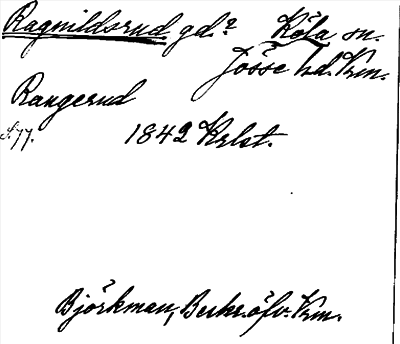 Ragnildsrud. gd.? Köla sn.
Jösse hd. Vrm.
Rangerud
S. 77. 1842 Krlst.
Björkman, Beskr. öfv. Vrm.